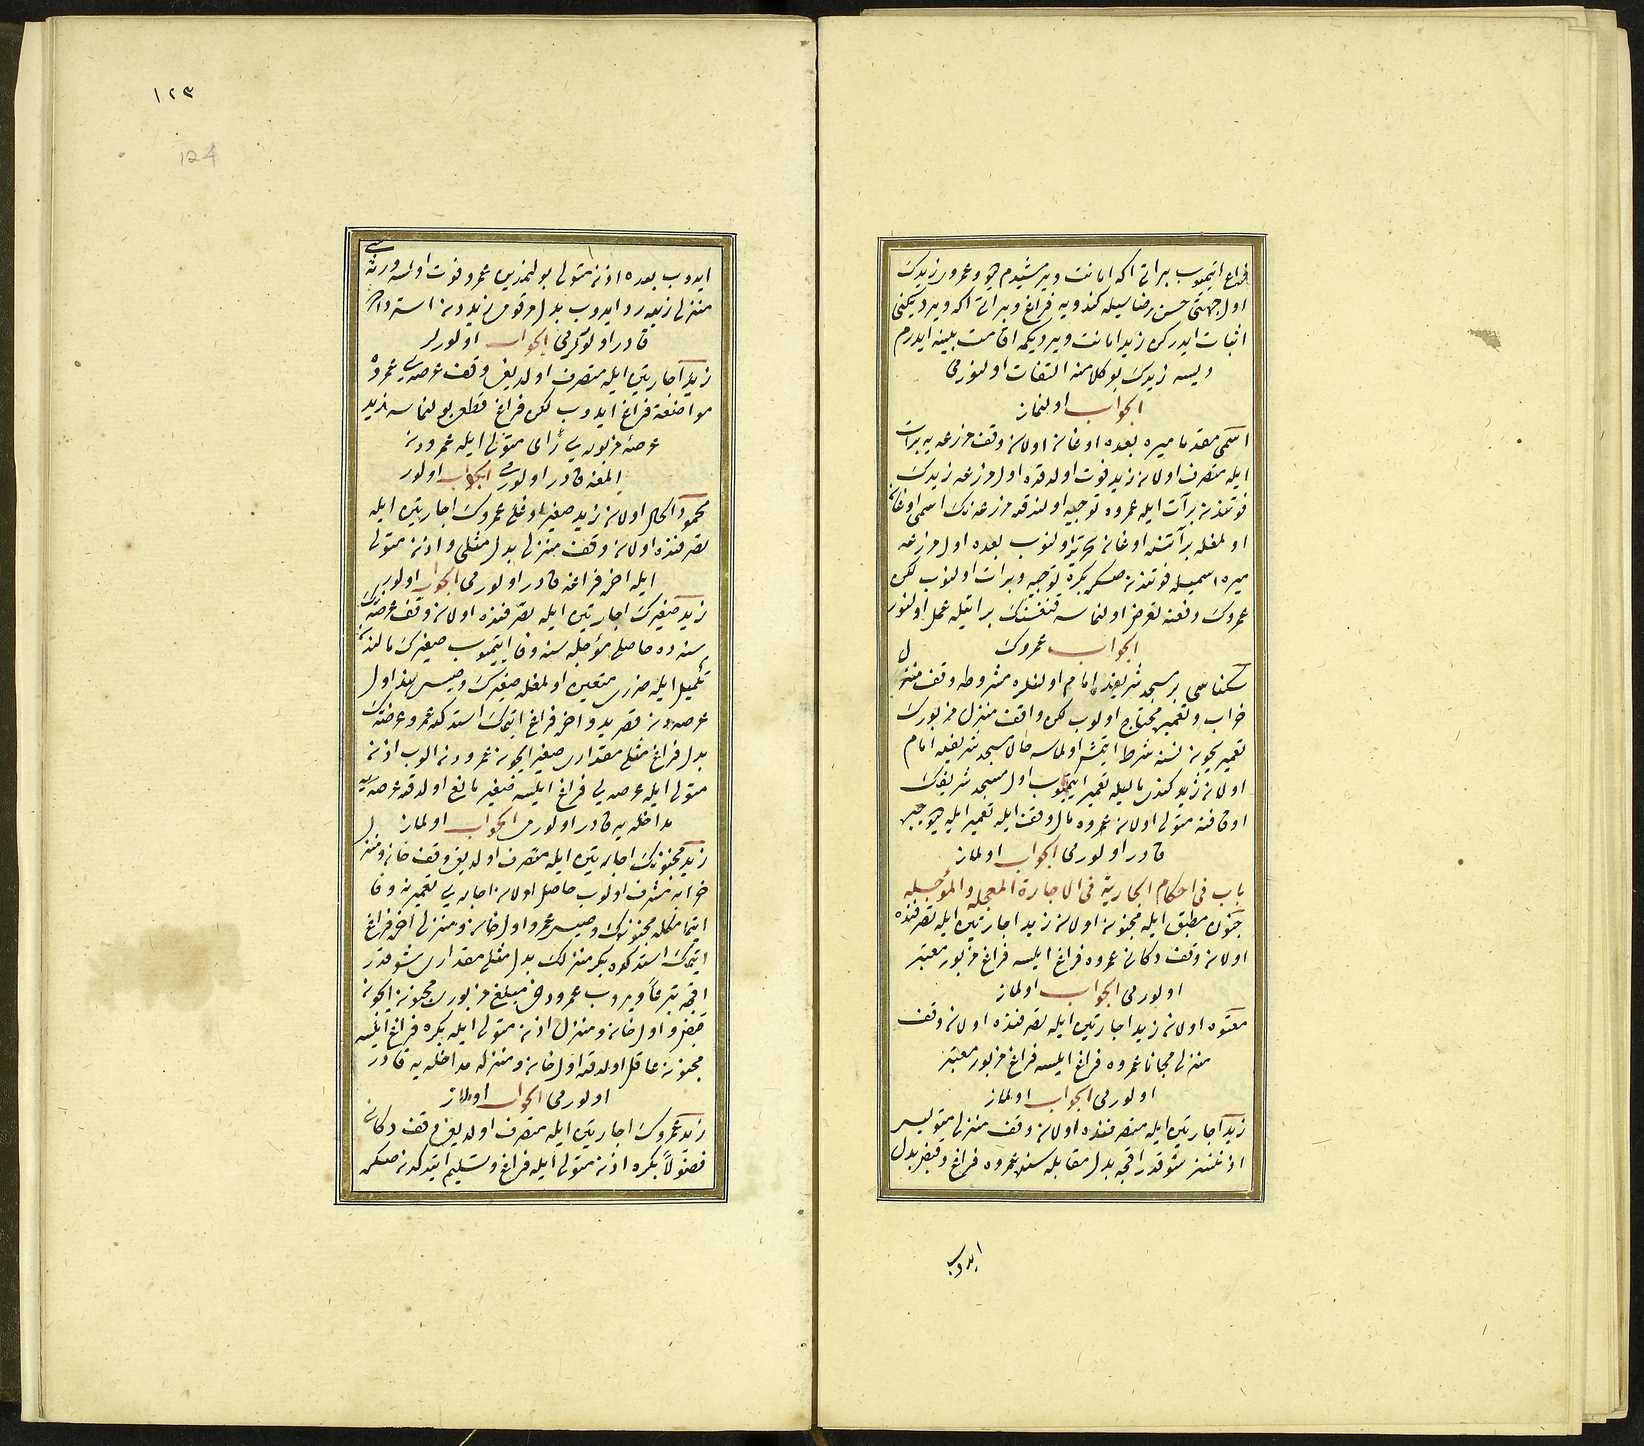 فراغ ایتمیوب براتی اکا امانت ویرمشیدم دیو و عمرو زیدك
اول جهتی حسن رضاسیله کندویه فراغ و براتی اکا ویردیکنی
اثبات ایدرکن زید امانت ویردیکمه اقامت بینه ایدرم
دیسه زیدك بو کلامنه التفات اولنورمی
الجواب اولنماز
اسمی مقدما میره بعده اوغلنه اولان وقف مزرعه یه برات
ایله متصرف اولان زید فوت اولدقده اول مزرعه زیدك
فوتندن برات ایله عمروه توجیه اولندقده مزرعه نك اسمی
اولمغله براتنه تحریر اولنوب بعده اول مزرعه
میره اسمیله فوتندن بکره توجیه و برات اولنوب لکن
عمروك رفعنه تعرض اولنماسه قنغیسنك براتیله عمل اولنور
الجواب عمروك
سکناسی بر مسجد شریفده امام اولنلره مشروطه وقف منزل
خراب و تعمیره محتاج اولوب لکن واقف منزل مزبورك
تعمیریچون نسنه شرط ایتمش اولماسه حالا مسجد شریفده امام
اولان زید کندی مالیله تعمیر ایتمیوب اول مسجد شریفك
اوقافنه متولی اولان عمروه مال وقف ایله تعمیر ایله دیو جبره
قادر اولورمی الجواب اولماز
باب فی احکام الجاریة فی الاجارة المعجله والمؤجله
جنون مطبق ایله مجنون اولان زید اجارتین ایله تصرفنده
اولان وقف دکانی عمروه فراغ ایلسه فراغ مزبور معتبر
اولورمی الجواب اولماز
معتوه اولان زید اجارتین ایله تصرفنده اولان وقف
منزلی مجانا عمروه فراغ ایلسه فراغ مزبور معتبر
اولورمی الجواب اولماز
زید اجارتین ایله متصرفنده اولان وقف منزلی متولیسی
اذنندن شوقدر اقچه بدل مقابله سنده عمروه فراغ و قبض بدل
ایدوب
١٢٣
124
ایدوب بعده اذن متولی بولنمدین عمرو فوت اولسه ورثه سی
منزلی زیده رد ایدوب بدل مرقومی زیددن استرداده
قادر اولورلرمی الجواب اولورلر
زید اجارتین ایله متصرف اولدیغی وقف عرصه یی عمروه
مواضعة فراغ ایدوب لکن فراغ قطعی بولنماسه زید
عرصه مزبوره یی رأی متولی ایله عمرودن
المغه قادر اولورمی الجواب اولور
محمود الحال اولان زید صغیر اوغلی عمروك اجارتین ایله
تصرفنده اولان وقف منزلی بدل مثلی و اذن متولی
ایله اخره فراغه قادر اولورمی الجواب اولور
زید صغیرك اجارتین ایله تصرفنده اولان وقف عرصه نك
سنه ده حاصلی مؤجله سنه وفا ایتمیوب صغیرك مالندن
تکمیل ایله ضرری متعین اولمغله صغیرك وصیسی هند اول
عرصه دن قصر ید و اخره فراغ ایتمك استدکده عمرو عرصه نك
بدل فراغ مثلی مقداری صغیر ایچون عمرودن الوب اذن
متولی ایله عرصه یی فراغ ایلسه صغیر بالغ اولدقده عرصه یه
مداخله یه قادر اولورمی الجواب اولماز
زید مجنونك اجارتین ایله متصرف اولدیغی وقف خان و منزل
خرابه مشرف اولوب حاصل اولان اجاره سی تعمیرینه وفا
ایتمامکله مجنونك وصیسی عمرو اول خان و منزلی اخره فراغ
ایتمك استدکده بکر منزلك بدل مثلی مقداری شوقدر
اقچه تبرعا ویروب عمرو دخی مبلغ مزبوری مجنون ایچون
قبض و اول خان و منزلی اذن متولی ایله بکره فراغ ایلسه
مجنون عاقل اولدقده اول خان و منزله مداخله یه قادر
اولورمی الجواب اولماز
زید عمروك اجارتین ایله متصرف اولدیغی وقف دکانی
فضولا بکره اذن متولی ایله فراغ و تسلیم ایتدکدن صکره